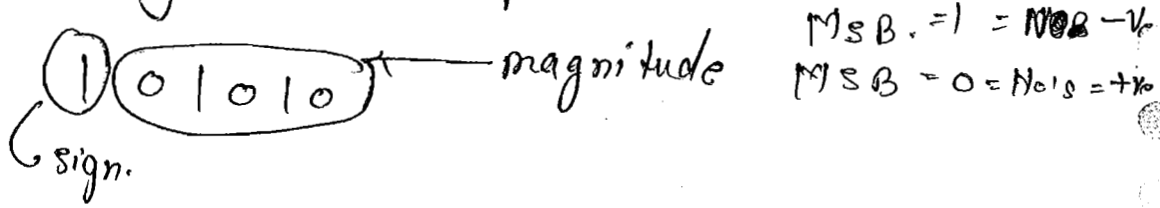 1 0 1 0 1 0 magnitude
sign.
MSB. = 1 = -Ve
MSB = 0 = No's = +Ve